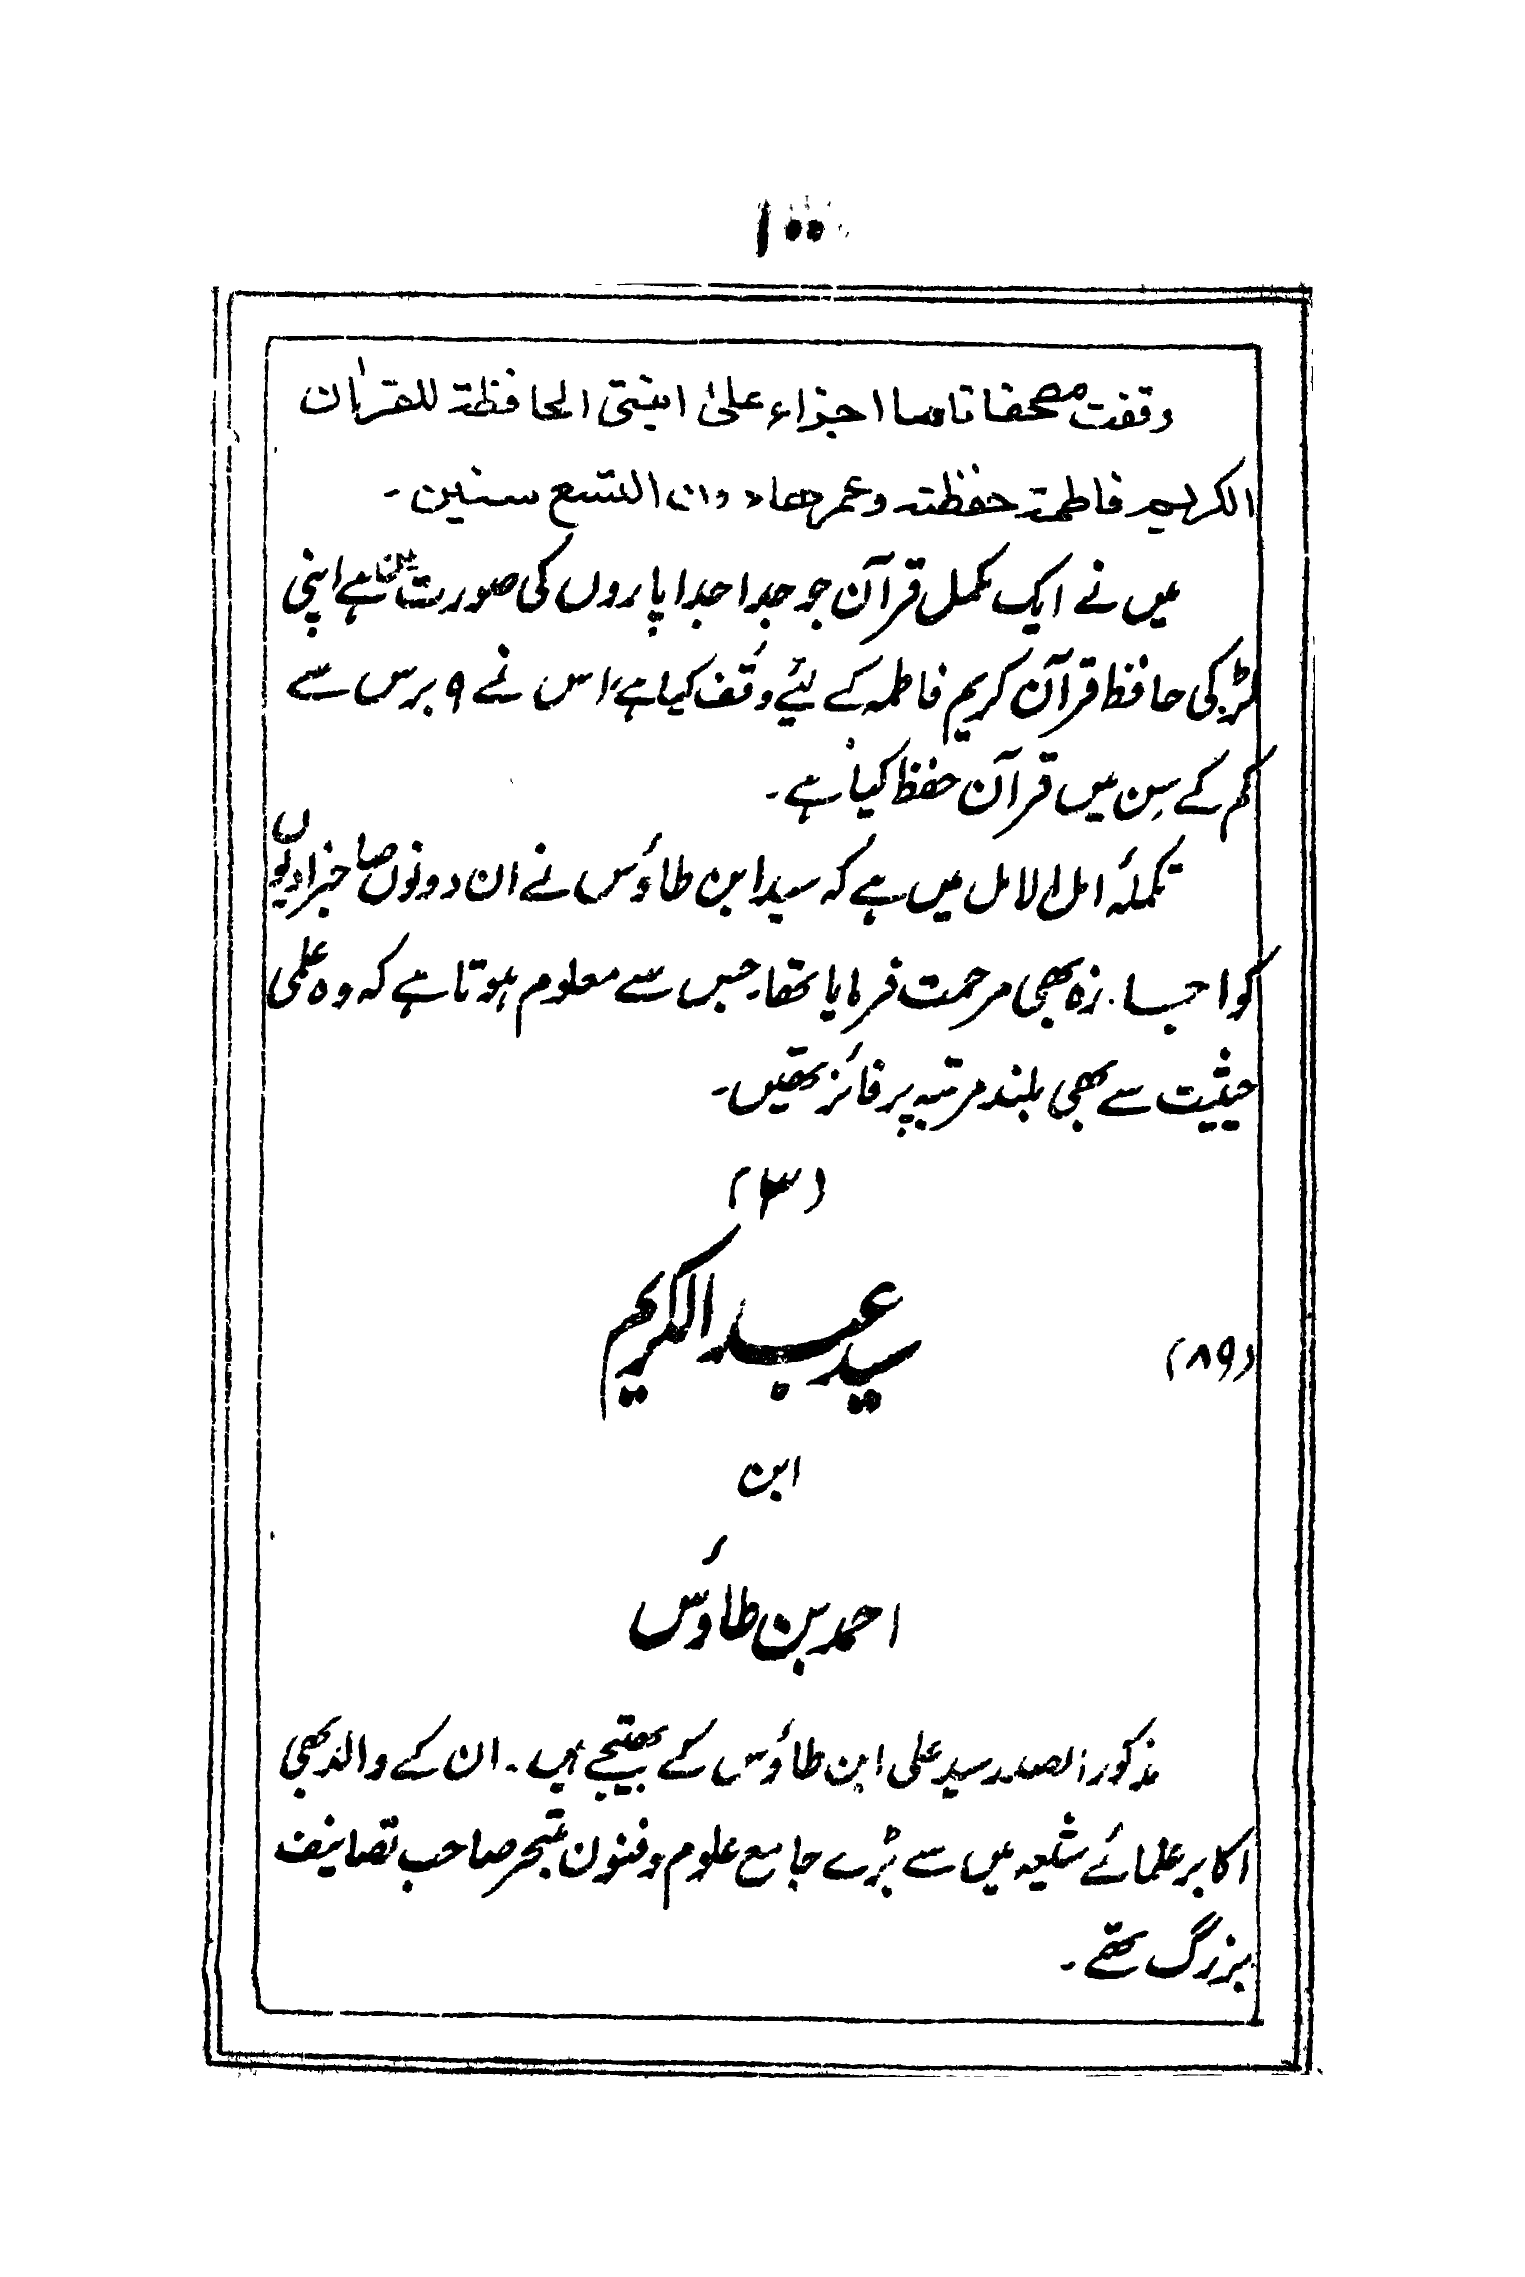 ۱۰۰
وقفت مصحفا تاما اجزاء علیٰ ابنتی الحافظة للقراٰن
الکریم فاطمة حفظته وعمرها دون التسع سنین۔
میں نے ایک مکمل قرآن جو جدا جدا پاروں کی صورت میں ہے اپنی
لڑکی حافظ قرآن کریم فاطمہ کے لئے وقف کیا ہے، اس نے ۹ برس سے
کم کے سِن میں قرآن حفظ کیا ہے۔
تکملۂ امل الامل میں ہے کہ سید ابن طاؤس نے ان دونوں صاحبزادیوں
کو اجازہ بھی مرحمت فرمایا تھا۔ جس سے معلوم ہوتا ہے کہ وہ علمی
حیثیت سے بھی بلند مرتبہ پر فائز تھیں۔
(۳)
(۸۹) سید عبد الکریم
ابن
احمد بن طاؤس
مذکور الصدر سید علی ابن طاؤس کے بھتیجے ہیں۔ ان کے والد بھی
اکابر علمائے شیعہ میں سے بڑے جامع علوم و فنون متبحر صاحب تصانیف
بزرگ تھے۔